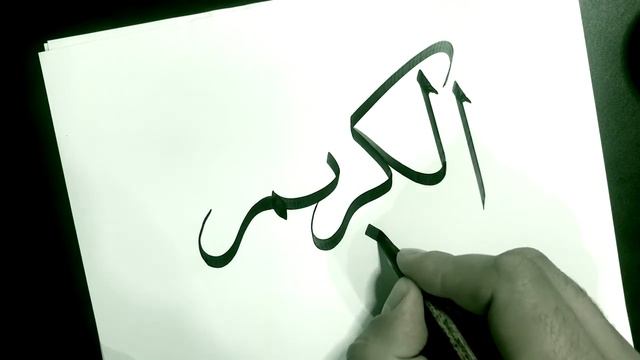 الكريم